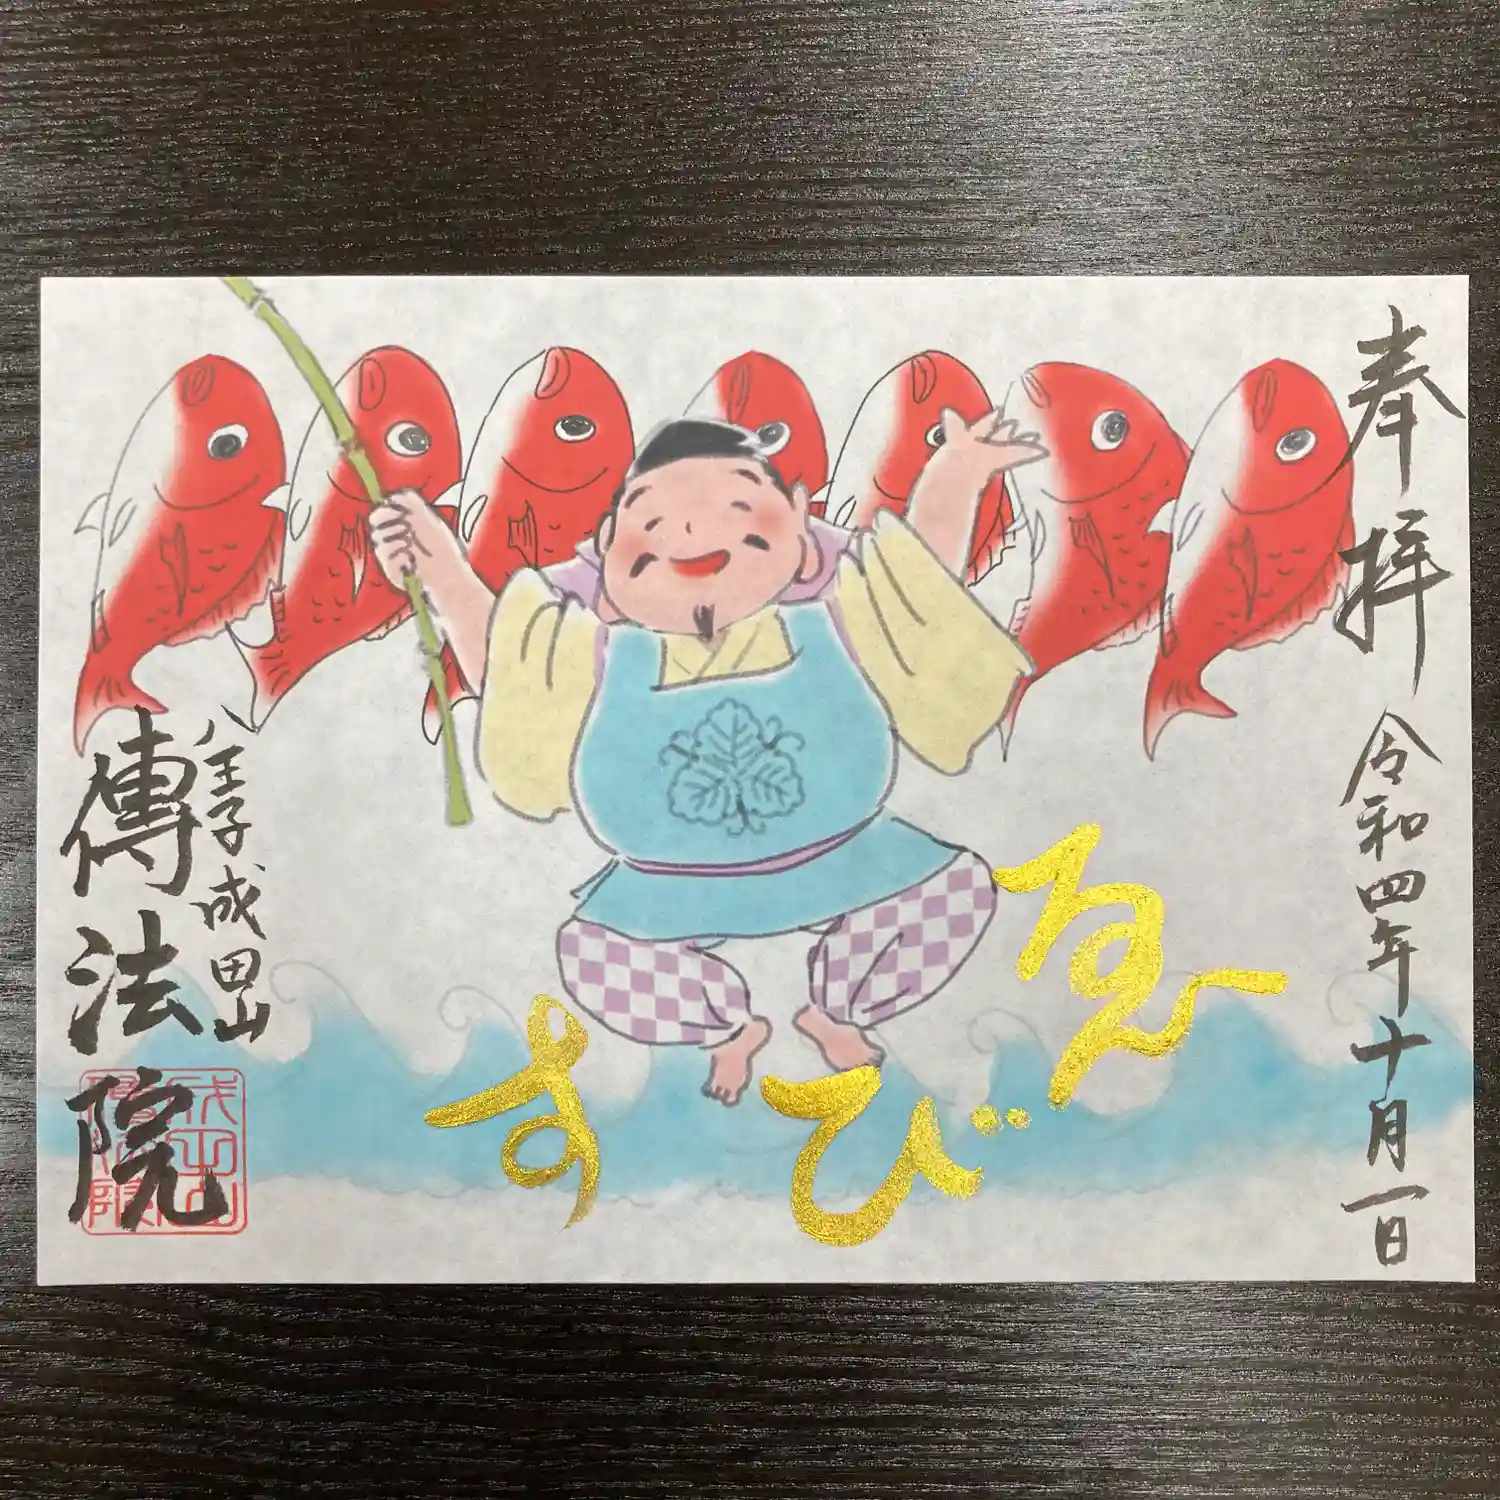 奉拝
令和四年十月一日
ゑびす
八王子成田山
傳法院